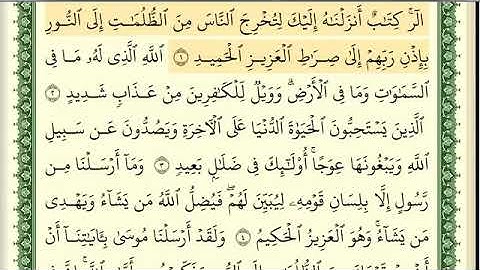 الٓر ۚ كِتَٰبٌ أَنزَلْنَٰهُ إِلَيْكَ لِتُخْرِجَ ٱلنَّاسَ مِنَ ٱلظُّلُمَٰتِ إِلَى ٱلنُّورِ
بِإِذْنِ رَبِّهِمْ إِلَىٰ صِرَٰطِ ٱلْعَزِيزِ ٱلْحَمِيدِ ١ ٱللَّهِ ٱلَّذِى لَهُۥ مَا فِى
ٱلسَّمَٰوَٰتِ وَمَا فِى ٱلْأَرْضِ ۗ وَوَيْلٌ لِّلْكَٰفِرِينَ مِنْ عَذَابٍ شَدِيدٍ ٢
ٱلَّذِينَ يَسْتَحِبُّونَ ٱلْحَيَوٰةَ ٱلدُّنْيَا عَلَى ٱلْءَاخِرَةِ وَيَصُدُّونَ عَن سَبِيلِ
ٱللَّهِ وَيَبْغُونَهَا عِوَجًا ۚ أُو۟لَٰٓئِكَ فِى ضَلَٰلٍۭ بَعِيدٍ ٣ وَمَآ أَرْسَلْنَا مِن
رَّسُولٍ إِلَّا بِلِسَانِ قَوْمِهِۦ لِيُبَيِّنَ لَهُمْ ۖ فَيُضِلُّ ٱللَّهُ مَن يَشَآءُ وَيَهْدِى
مَن يَشَآءُ ۚ وَهُوَ ٱلْعَزِيزُ ٱلْحَكِيمُ ٤ وَلَقَدْ أَرْسَلْنَا مُوسَىٰ بِـَٔايَٰتِنَآ أَنْ